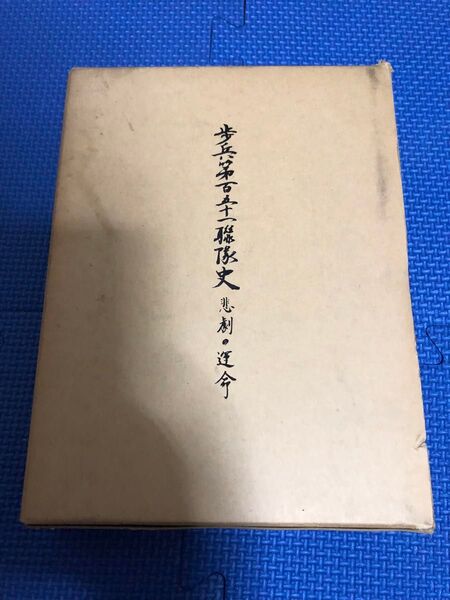 歩兵第百五十一聯隊史 悲劇の運命